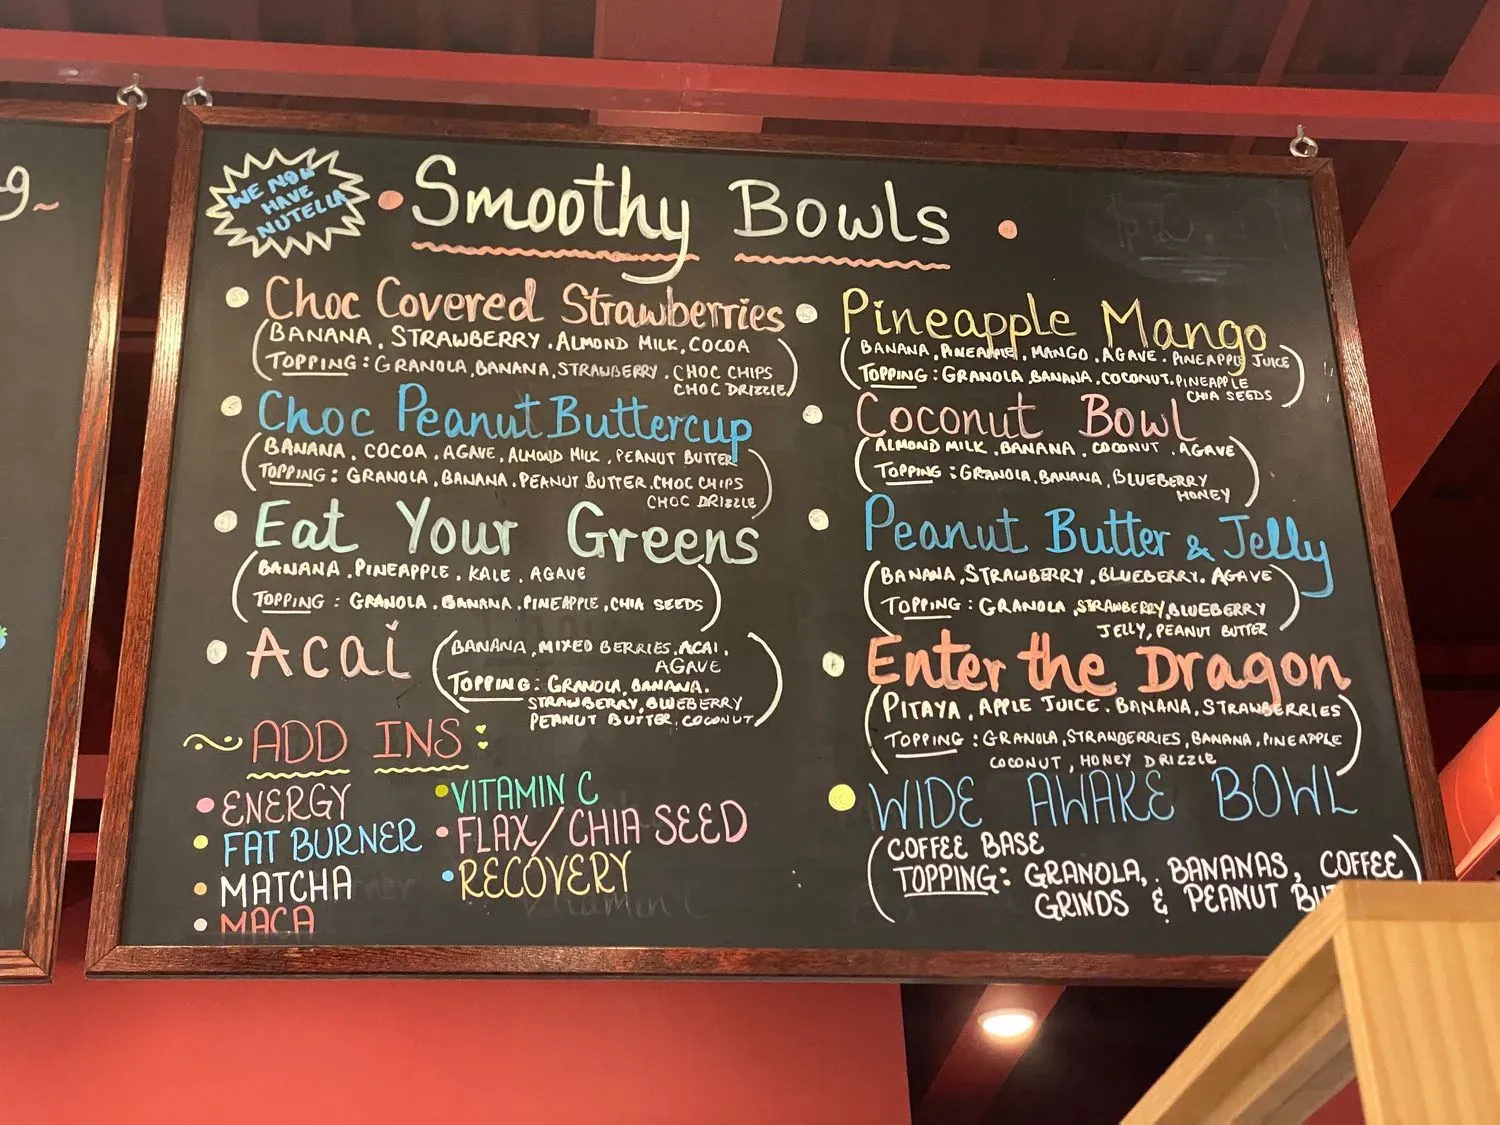 WE NOW
HAVE
NUTELLA
Smoothy Bowls
Choc Covered Strawberries
(BANANA, STRAWBERRY. ALMOND MILK, COCOA
TOPPING: GRANOLA, BANANA, STRAWBERRY. CHOC CHIPS
CHOC DRIZZLE)
Choc Peanut Buttercup
(BANANA. COCOA. AGAVE, ALMOND MILK, PEANUT BUTTER
TOPPING: GRANOLA, BANANA. PEANUT BUTTER. CHOC CHIPS
CHOC DRIZZLE)
Eat Your Greens
(BANANA. PINEAPPLE, KALE. AGAVE
TOPPING: GRANOLA. BANANA. PINEAPPLE, CHIA SEEDS)
Acai
(BANANA, MIXED BERRIES. ACAI.
AGAVE
TOPPING: GRANOLA, BANANA.
STRAWBERRY, BLUEBERRY
PEANUT BUTTER, COCONUT)
ADD INS:
ENERGY
FAT BURNER
MATCHA
MACA
VITAMIN C
FLAX/CHIA SEED
RECOVERY
Pineapple Mango
(BANANA, PINEAPPLE, MANGO, AGAVE. PINEAPPLE JUICE
TOPPING: GRANOLA, BANANA. COCONUT. PINEAPPLE
CHIA SEEDS)
Coconut Bowl
(ALMOND MILK, BANANA, COCONUT. AGAVE
TOPPING: GRANOLA, BANANA, BLUEBERRY
HONEY)
Peanut Butter & Jelly
(BANANA, STRAWBERRY, BLUEBERRY. AGAVE
TOPPING: GRANOLA, STRAWBERRY, BLUEBERRY
JELLY, PEANUT BUTTER)
Enter the Dragon
(PITAYA, APPLE JUICE. BANANA, STRAWBERRIES
TOPPING: GRANOLA, STRANBERRIES, BANANA, PINEAPPLE
COCONUT, HONEY DRIZZLE)
WIDE AWAKE BOWL
(COFFEE BASE
TOPPING: GRANOLA, BANANAS, COFFEE
GRINDS & PEANUT